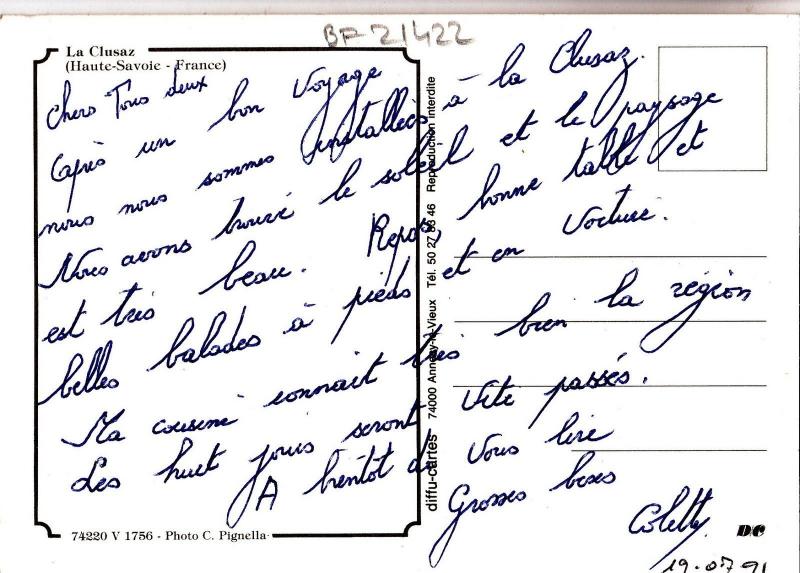 BF 21422
La Clusaz
(Haute-Savoie - France)
Chers Tous deux
Après un bon Voyage
nous nous sommes installées à la Clusaz.
Nous avons trouvé le soleil et le paysage
est très beau. Repos, bonne table et
belles balades à pieds et en Voiture.
Ma cousine connait très bien la région
Les huit jours seront Vite passés.
A bientôt de Vous lire
Grosses bises
Colette
19.07.91
diffu-cartes 74000 Annecy-le-Vieux Tél. 50 27 88 46 Reproduction interdite
74220 V 1756 - Photo C. Pignella
DC